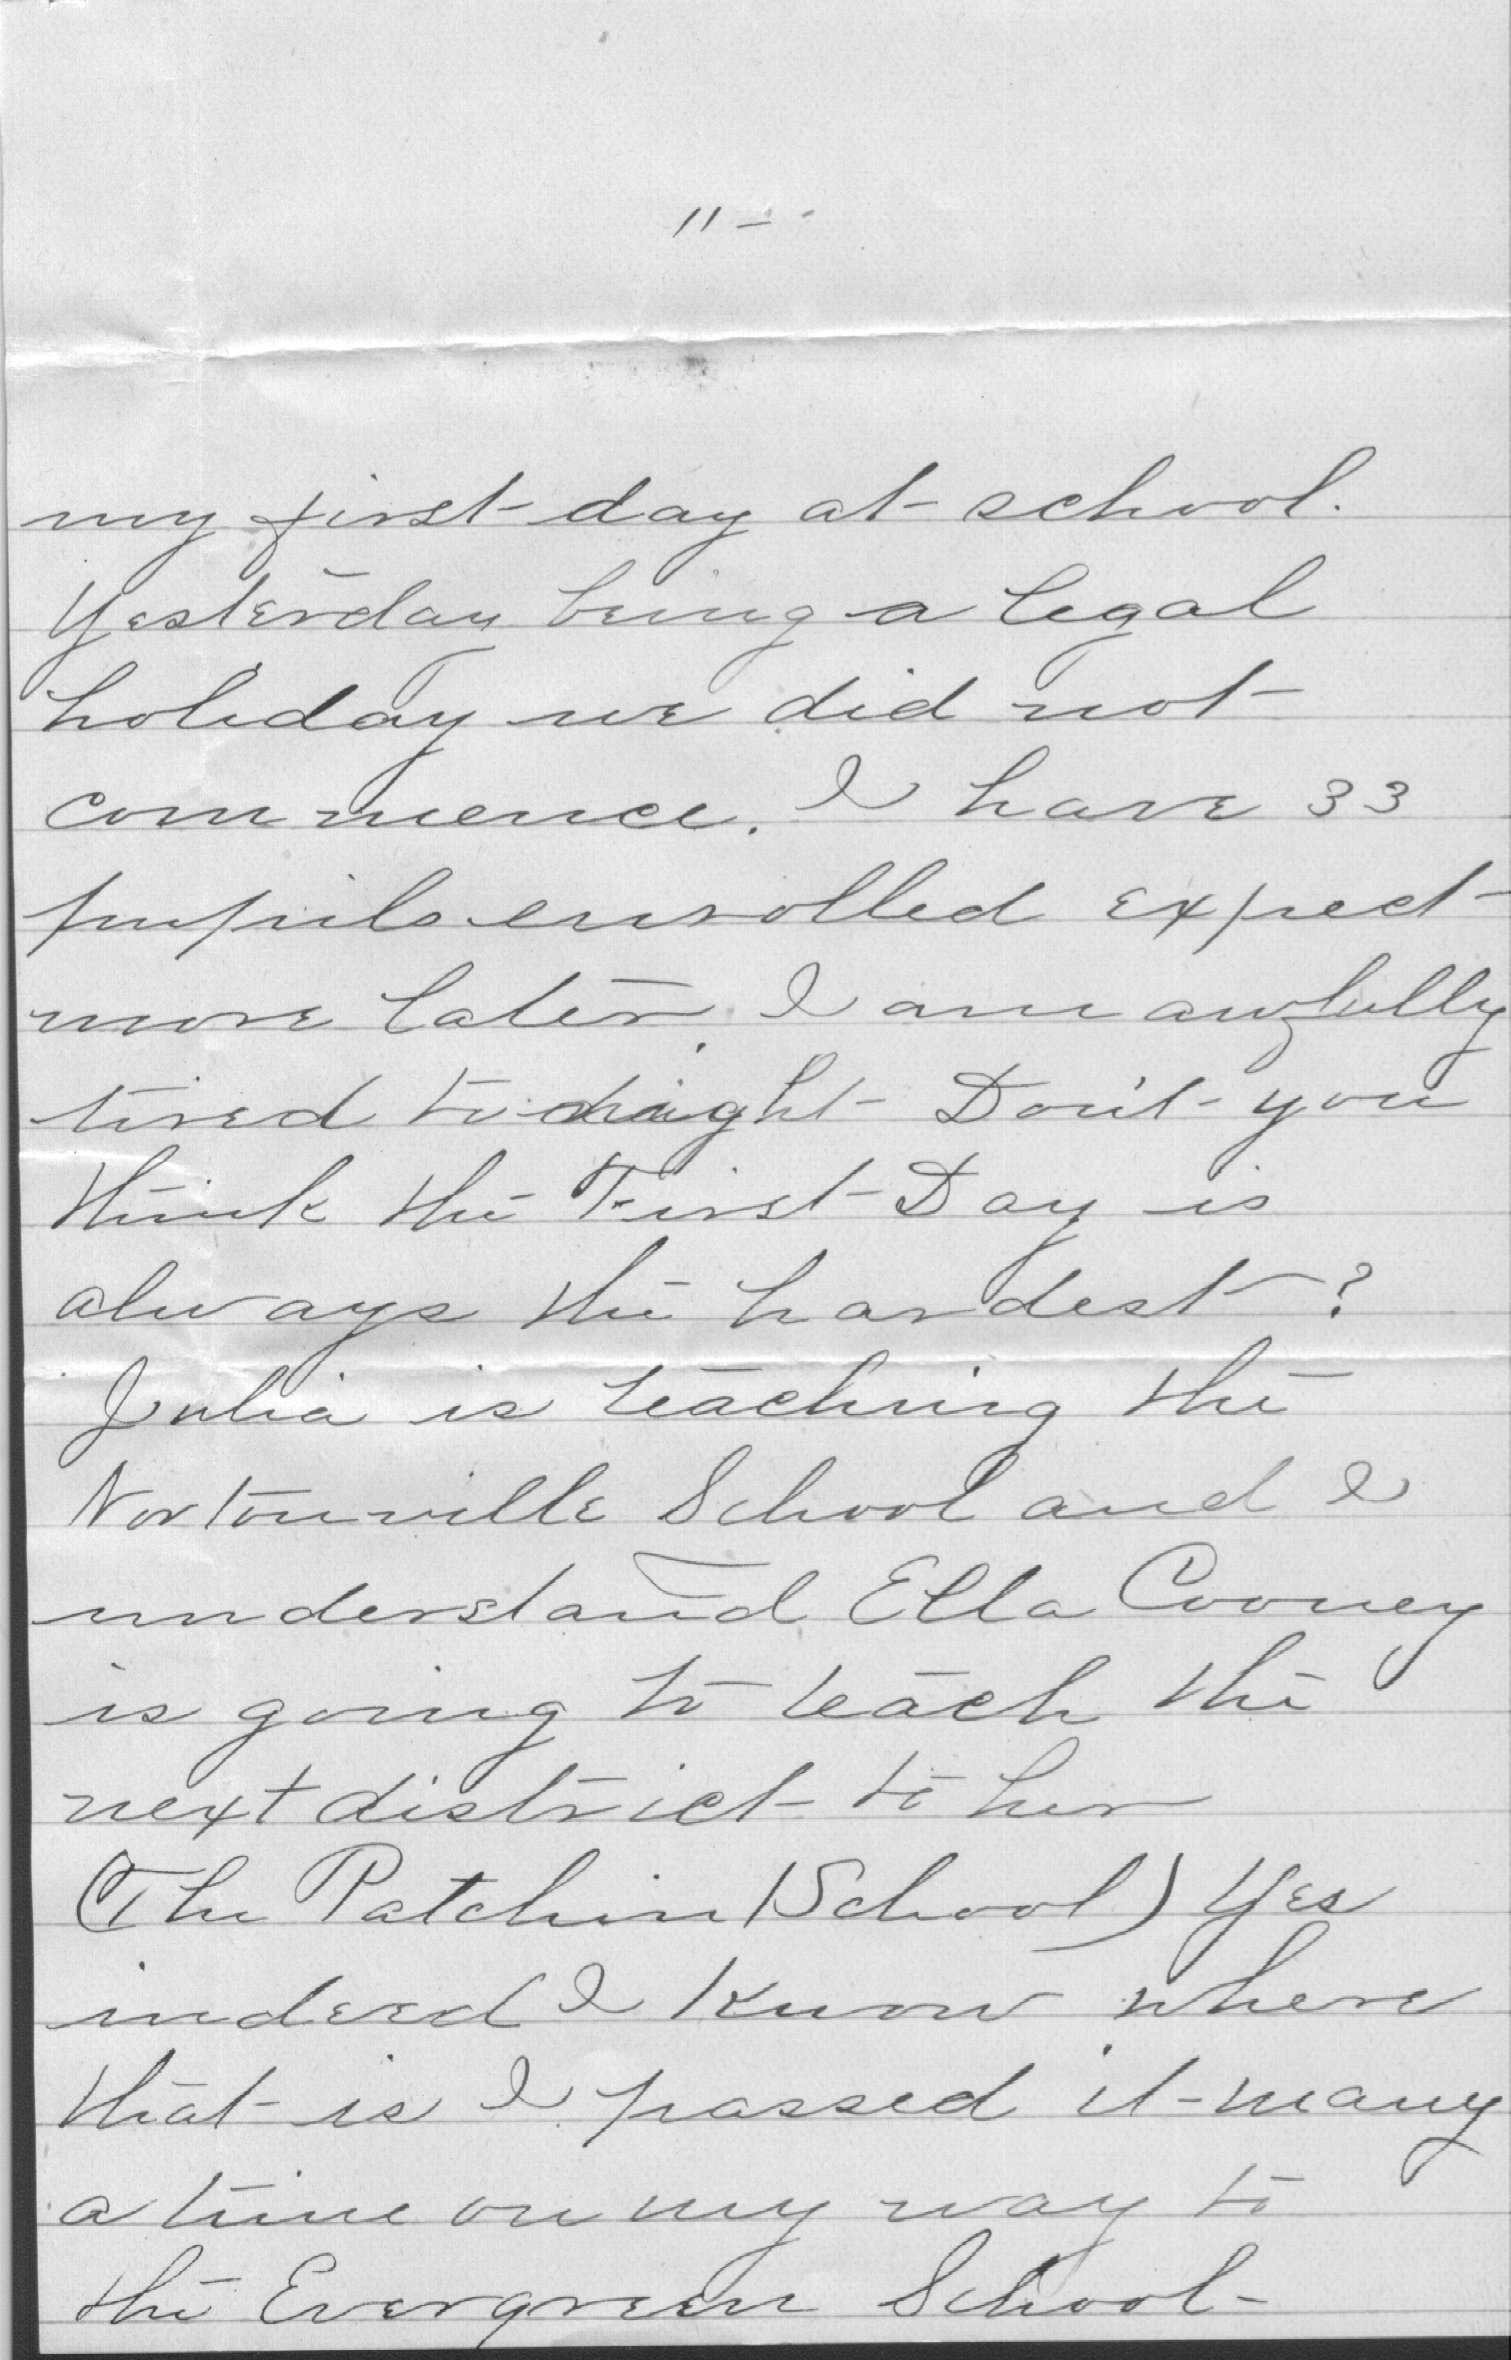 11 -
my first day at school.
Yesterday being a legal
holiday we did not
commence. I have 33
pupils enrolled expect
more later. I am awfully
tired to night Don't you
think the First Day is
always the hardest?
Julia is teaching the
Nortonville School and I
understand Ella Cooney
is going to teach the
next district to her
(The Patchin School) Yes
indeed I know where
that is I passed it many
a time on my way to
the Evergreen School-